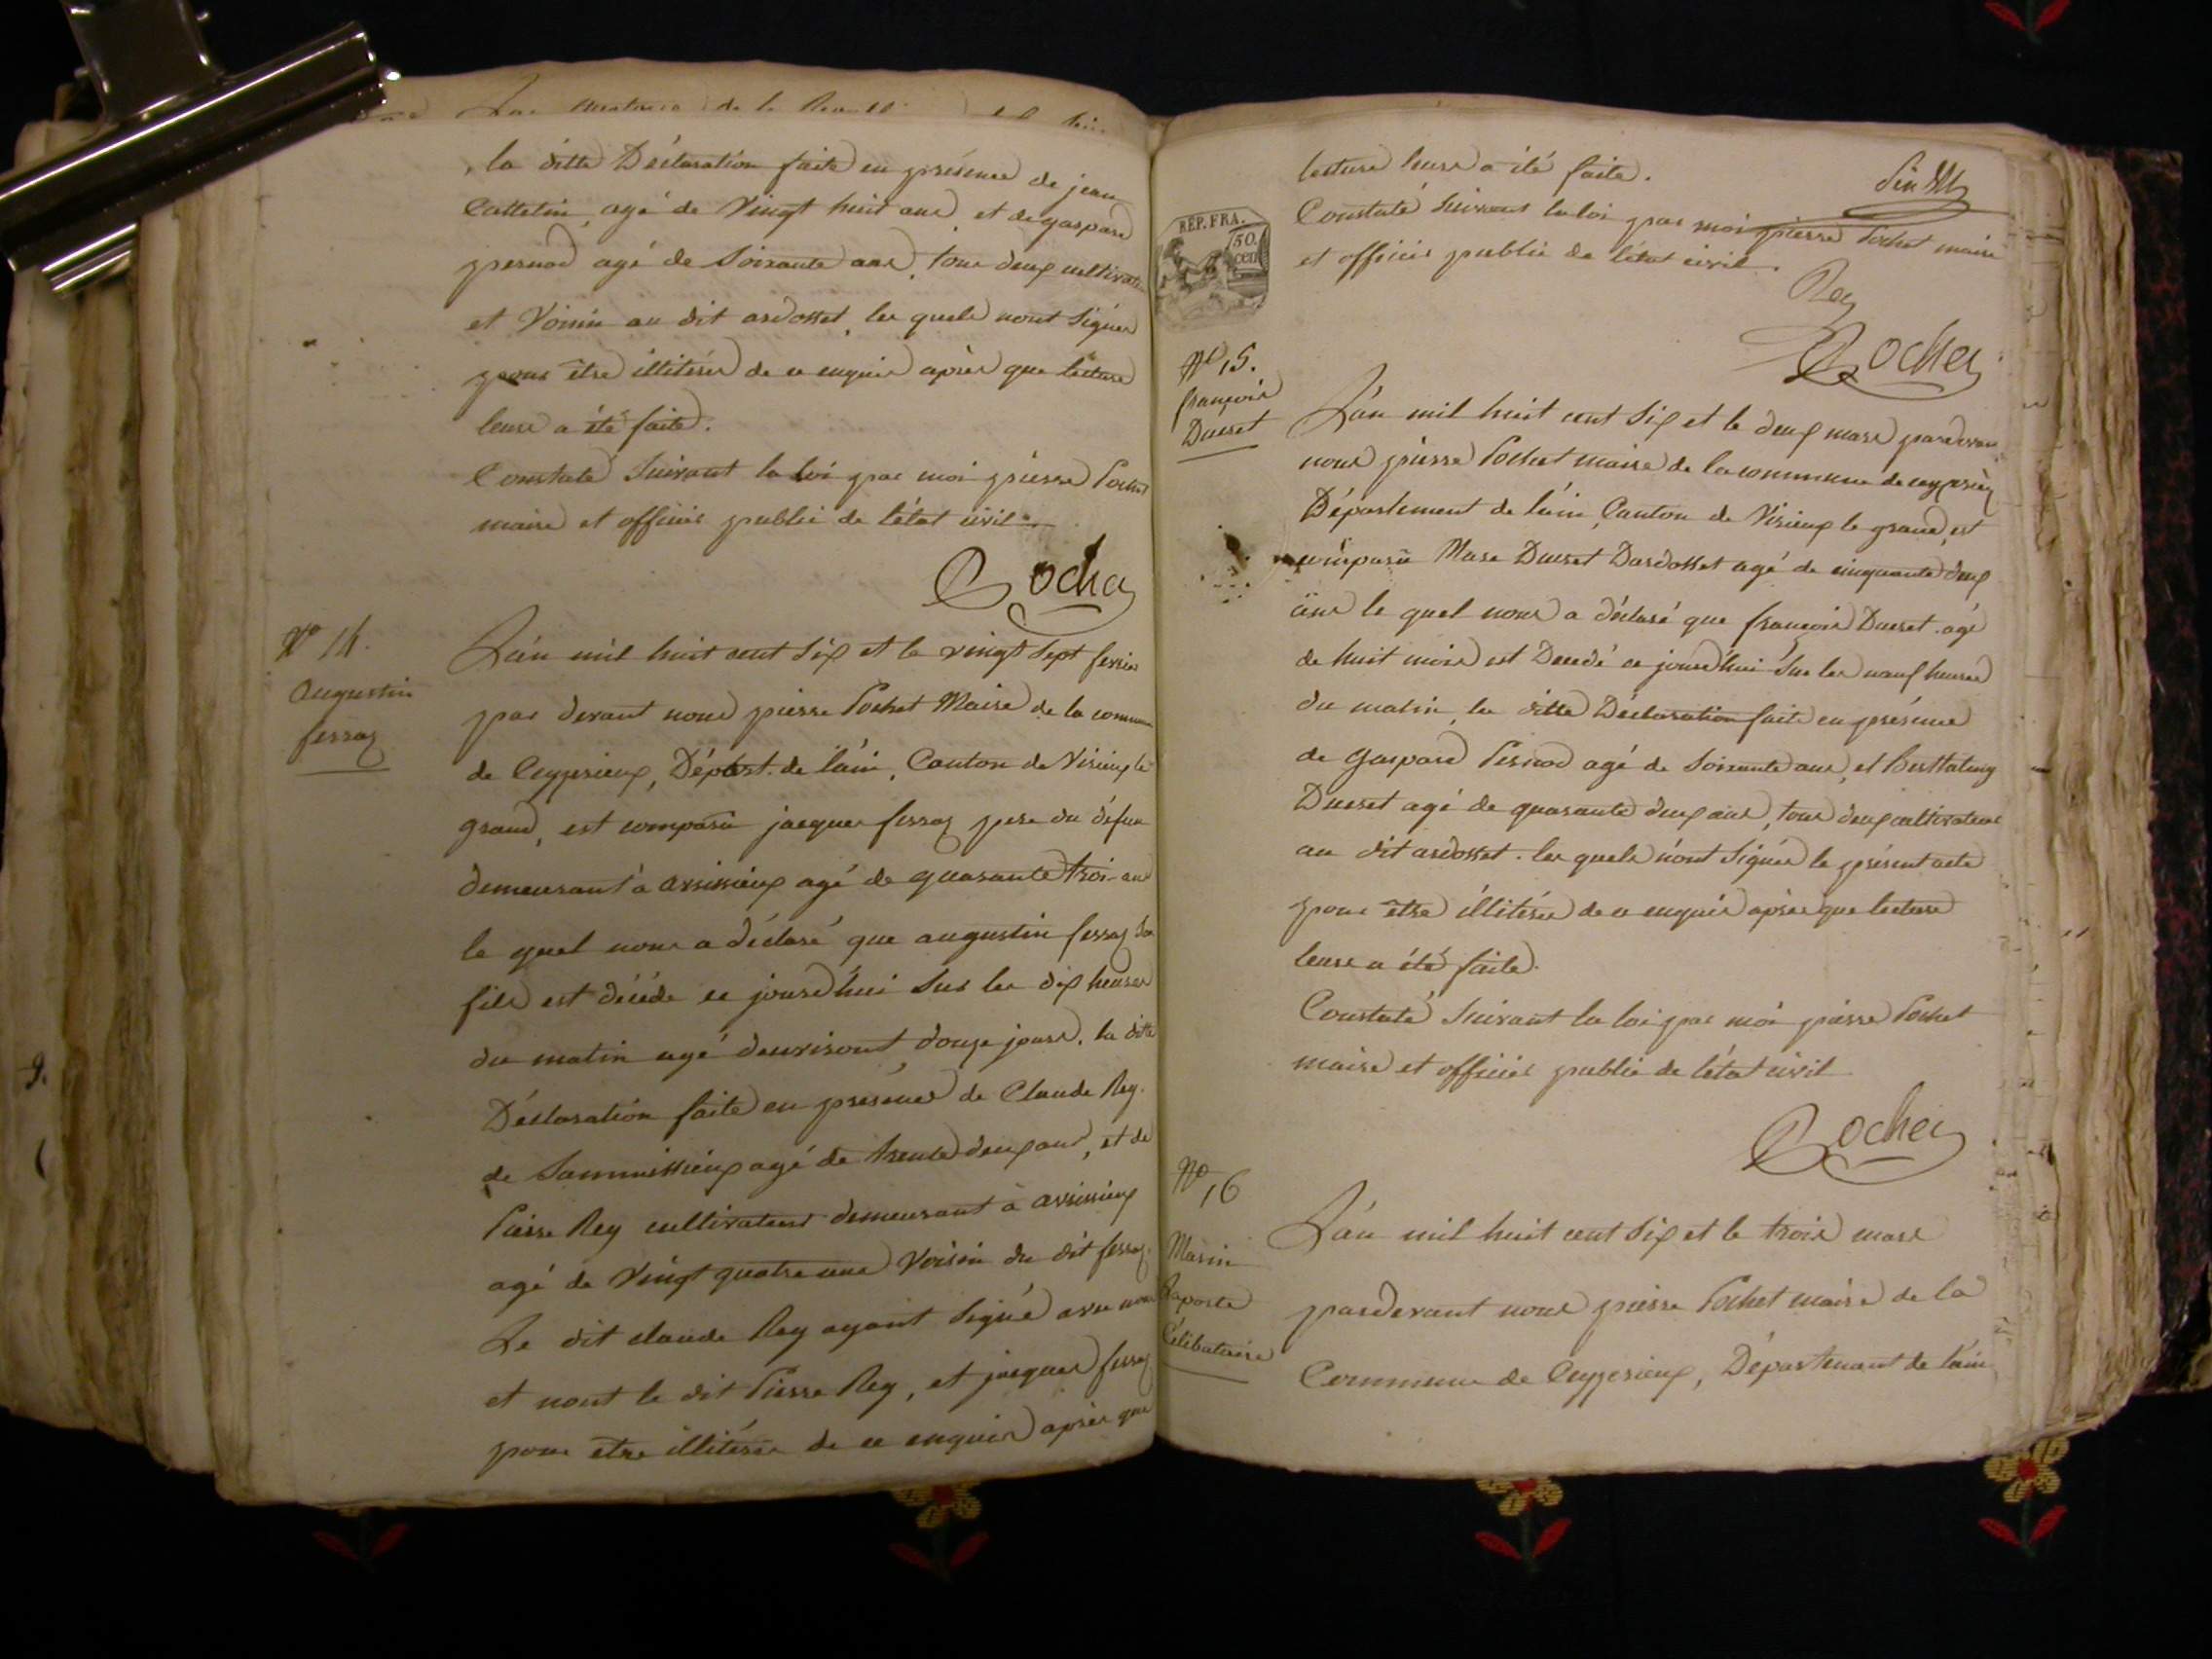 la ditte Déclaration faite en présence de jean
Cattelin, agé de Vingt huit ans et de gaspard
pernod agé de Soixante ans, tous deux cultivateurs
et Voisin au dit ardosset, les quels n'ont Signer
pour être illitérés de ce enquis après que lecture
leurs a été faite.
Constaté Suivant la Loi par moi pierre Pochet
maire et officier public de l'état civil.
Pochet
N° 14.
augustin
ferraz
L'an mil huit cent Six et le vingt Sept fevrier
par devant nous pierre Pochet Maire de la commune
de Ceyzerieux, Départ. de l'ain, Canton de Virieux le
grand, est comparu jacques ferraz pere du défun
demeurant à avrissieux agé de quarante trois ans
le quel nous a déclaré que augustin ferraz Son
fils est décédé ce jourd'hui Sur les dix heures
du matin agé d'environt douze jours. la ditte
Déclaration faite en présence de Claude Rey
de agé de trente deux ans, et de
Pierre Rey cultivateur demeurant à avrissieux
agé de Vingt quatre ans Voisin du dit ferraz
Le dit claude Rey ayant Signé avec nous
et nont le dit Pierre Rey, et jacques ferraz
pour etre illitérés de ce enquis après que
lecture leurs a été faite.
Constaté Suivant la loi par moi pierre Pochet maire
et officier public de l'état civil.
REP. FRA.
50.
cen
Rey
Pochet
N° 15.
françois
Ducret
L'an mil huit cent Six et le deux mars pardevant
nous pierre Pochet maire de la commune de ceyzerieux
Département de l'ain, Canton de Virieux le grand, est
comparu Marc Ducret Dardosset agé de cinquante deux
ans le quel nous a déclaré que françois Ducret agé
de huit mois est Décédé ce jourd'hui Sur les neuf heures
du matin, la ditte Déclaration faite en présence
de gaspard Pernod agé de Soixante ans, et
Ducret agé de quarante deux ans, tous deux cultivateurs
au dit ardosset. les quels n'ont Signés le présent acte
pour être illitérés de ce enquis après que lecture
leurs a été faite.
Constaté Suivant la loi par moi pierre Pochet
maire et officier public de l'état civil
Pochet
N° 16
Marin
Laporte
Célibataire
L'an mil huit cent Six et le trois mars
pardevant nous pierre Pochet maire de la
Commune de Ceyzerieux, Département de l'ain